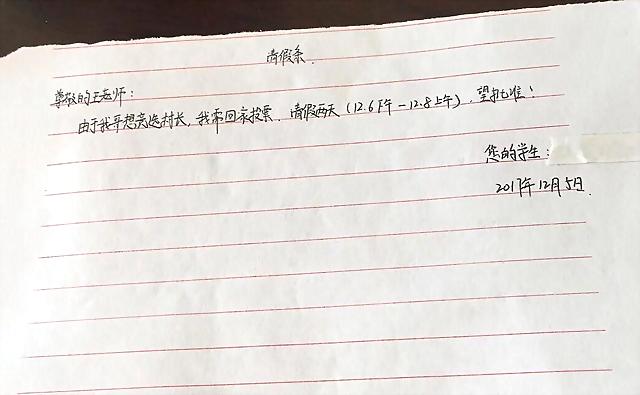 请假条.
尊敬的王老师：
由于我哥想竞选村长，我需回家投票，请假两天（12.6下午－12.8上午），望批准！
您的学生：
2017年12月5日.